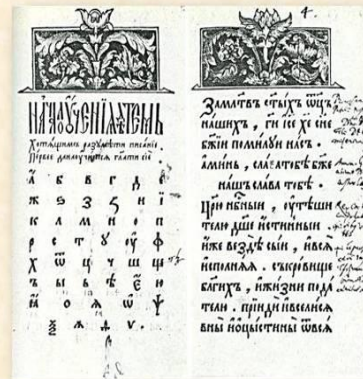 НАЧАЛО ОУЧЕНІѦ ДѢТЕМЪ
Хотѧщимъ разꙋмѣти писаніе.
Первое да наꙋчитсѧ глати сіе
а б в г д є
ж ѕ з ꙁ и ї
к л м н о п
р с т ꙋ оу ф
х ѿ ц ч ш щ
ъ ы ь ѣ є ю
ꙗ о ѧ ѡ ѱ
ѯ ѧ ѵ.
4.
Замлтвъ стыхъ ѿць
нашихъ, ги ісе хе сне
бжіи помилꙋи насъ.
аминь, слава тобѣ бже
нашъ слава тобѣ.
Црю нбныи, оутѣши
телю дше истинныи
иже вездѣ сыи, ивсѧ
исполнѧѧ. съкровище
благихъ, ижизни пода
телю. прииди ивселисѧ
вны иоцѣстины ѿвсѧ